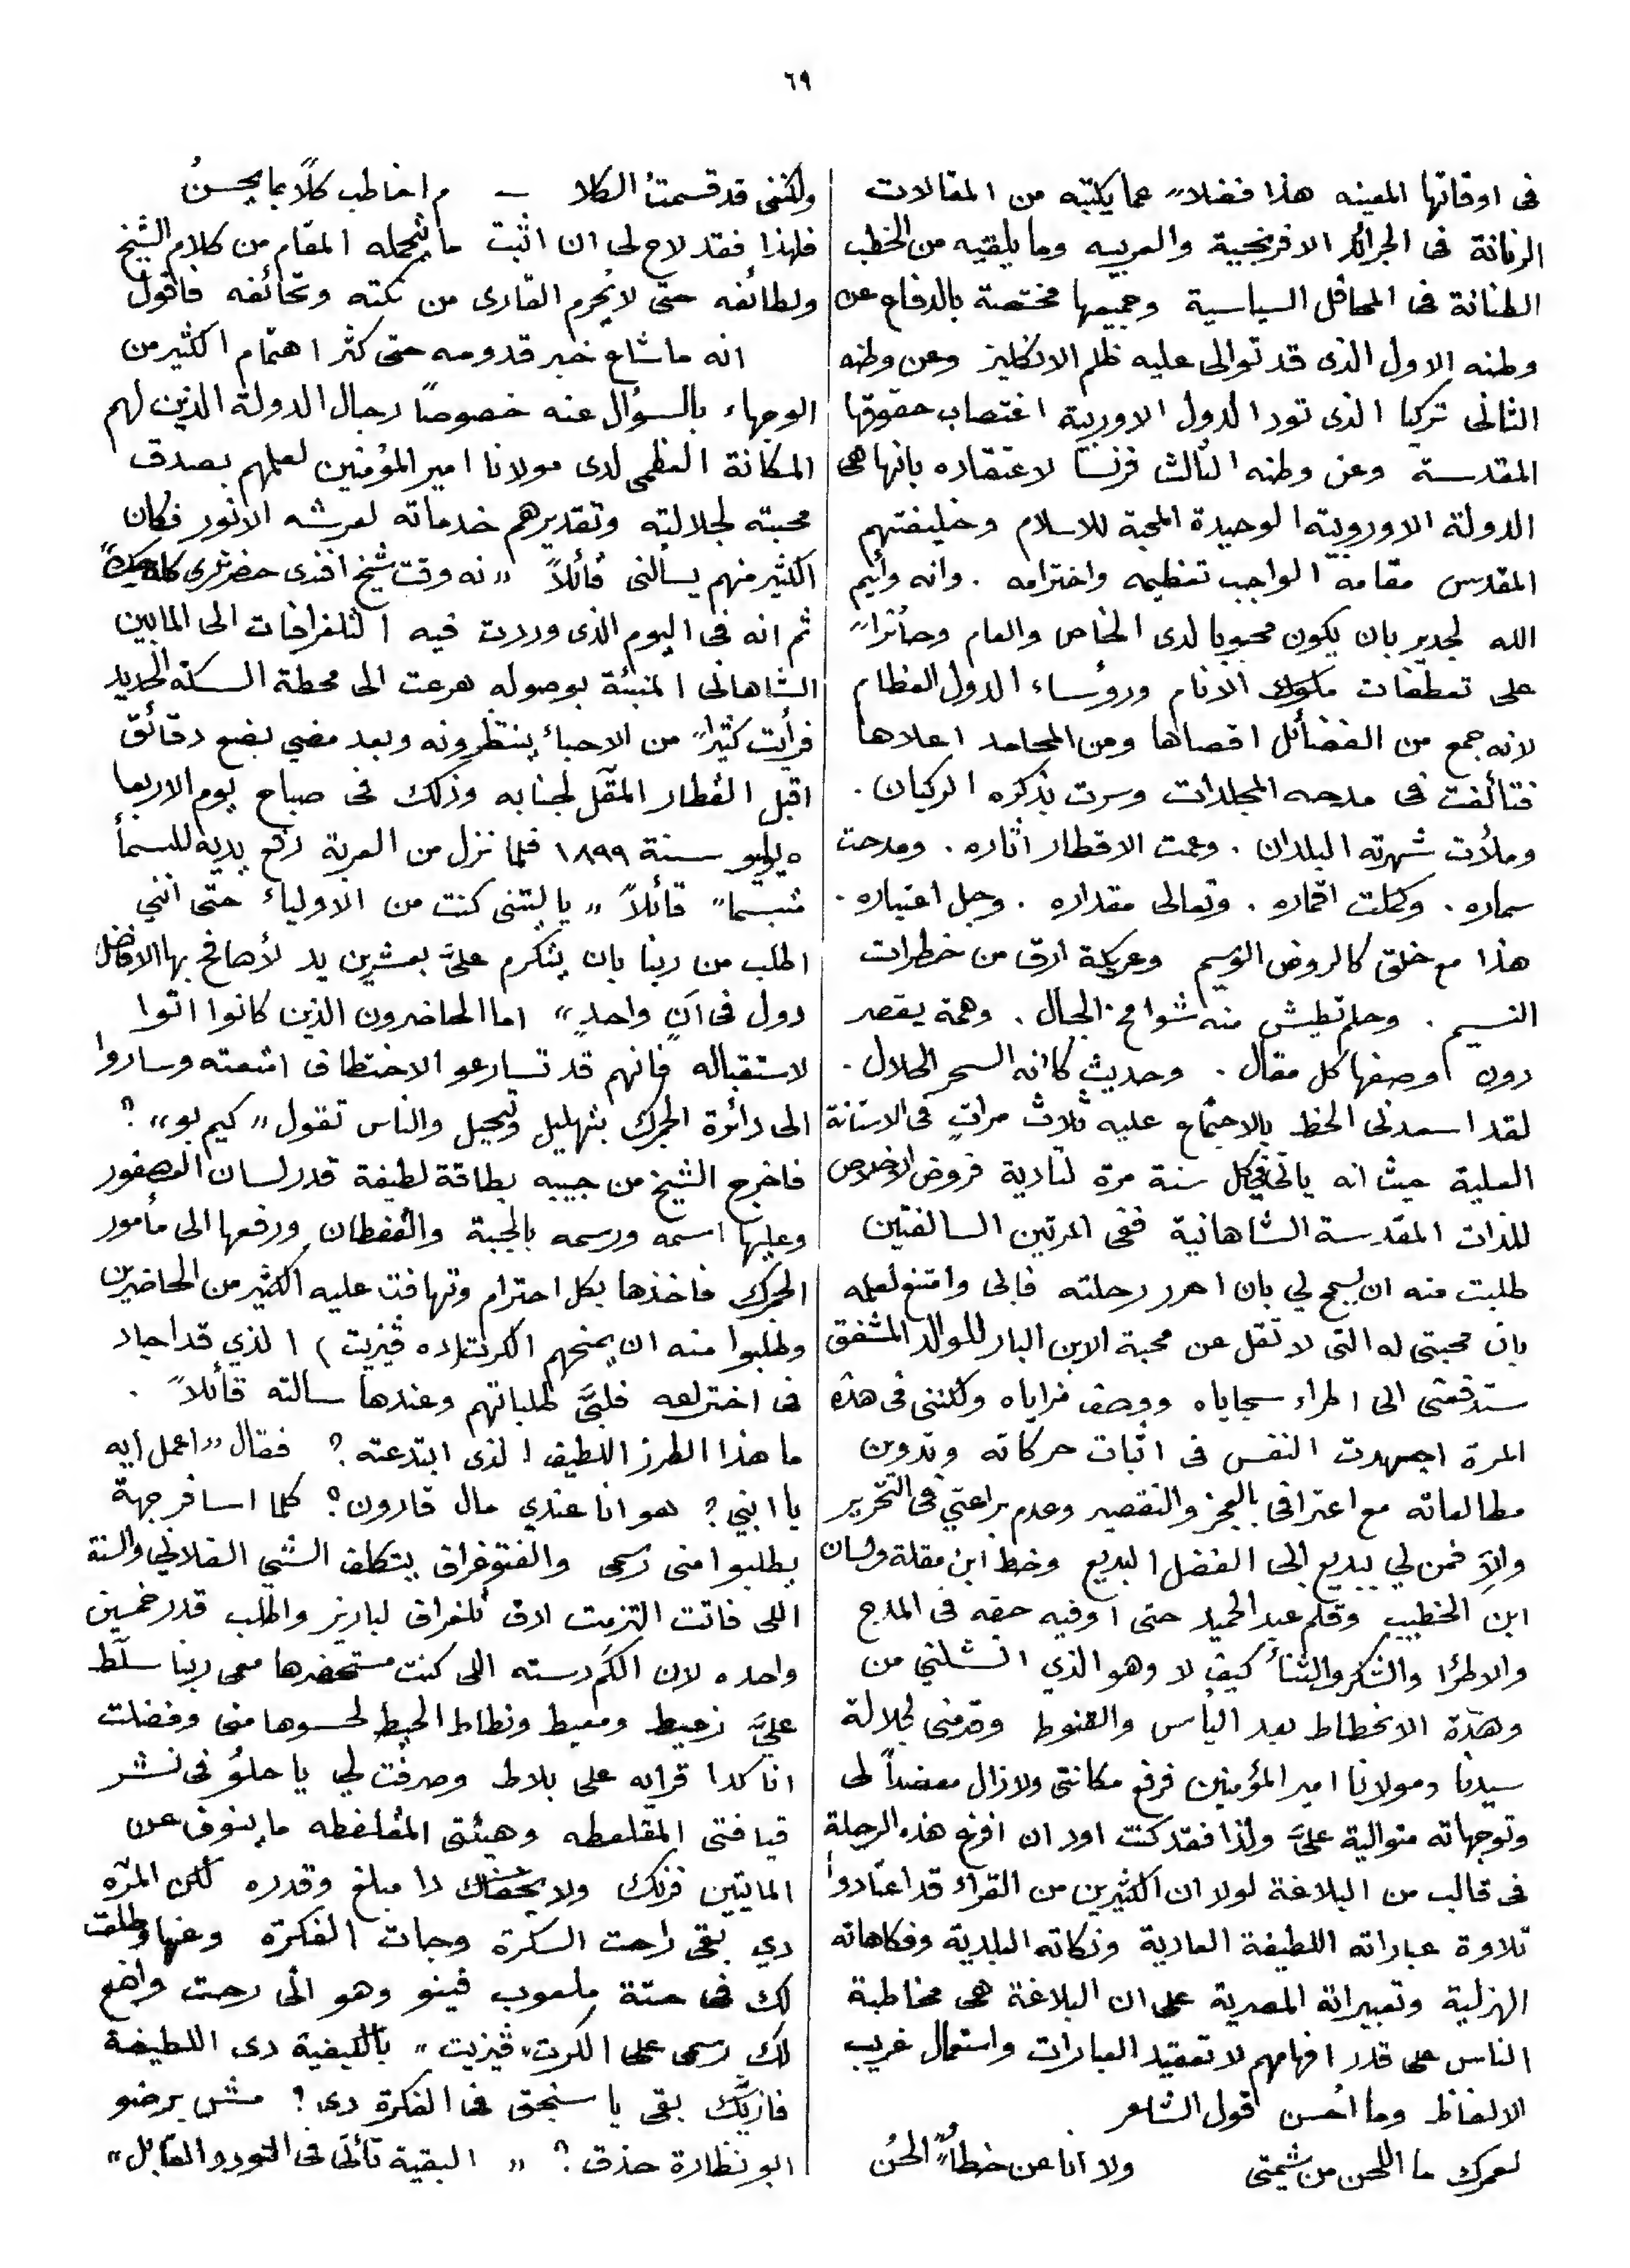 ٦٩
فى اوقاتها المعينه هذا فضلاً عما يكتبه من المقالات
الرنانة فى الجرائد الافرنجية والعربيه وما يلقيه من الخطب
الطنانة فى المحافل السياسية وجميعها مختصة بالدفاع عن
وطنه الاول الذى قد توالى عليه ظلم الانكليز وعن وطنه
الثانى تركيا الذى تود الدول الاوربية اغتصاب حقوقها
المقدسة وعن وطنه الثالث فرنسا لاعتقاده بانها هى
الدولة الاوروبية الوحيدة المحبة للاسلام وخليفتهم
المقدس مقامه الواجب تعظيمه واحترامه . وانه وأيم
الله لجدير بان يكون محبوبا لدى الخاص والعام وحائزاً
على تعطفات ملوك الانام ورؤساء الدول العظام
لانه جمع من الفضائل اقصاها ومن المحامد اعلاها
فتألفت فى مدحه المجلدات وسرت بذكره الركبان .
وملأت شهرته البلدان . وعمت الاقطار اثاره . ومدحت
سماره . وكملت اقماره . وتعالى مقداره . وجل اعتباره .
هذا مع خلق كالروض الوسيم وعريكة ارق من خطرات
النسيم . وحلم تطيش منه شوامخ الجبال . وهمة يقصر
دون اوصفها كل مقال . وحديث كانه السحر الحلال .
لقد اسعدنى الحظ بالاجتماع عليه ثلاث مرات فى الاستانة
العلية حيث انه ياتى فى كل سنة مرة لتادية فروض الاخلاص
للذات المقدسة الشاهانية ففى المرتين السالفتين
طلبت منه ان يسمح لي بان احرر رحلته فابى وامتنع لعلمه
بان محبتى له التى لا تقل عن محبة الابن البار للوالد المشفق
ستدفعنى الى اطراء سجاياه ووصف مزاياه ولكننى فى هذه
المرة اجهدت النفس فى اثبات حركاته وتدوين
مطالعاته مع اعترافى بالعجز والتقصير وعدم براعتي فى التحرير
والا فمن لي ببديع ابى الفضل البديع وخط ابن مقلة ولسان
ابن الخطيب وقلم عبد الحميد حتى اوفيه حقه فى المدح
والاطرا والشكر والثنأ كيف لا وهو الذي انتشلني من
وهدّة الانحطاط بعد اليأس والقنوط وقدمنى لجلالة
سيدنا ومولانا امير المؤمنين فرفع مكانتى ولا زال معضداً لى
وتوجهاته متوالية علىَّ ولذا فقد كنت اود ان افرغ هذه الرحلة
فى قالب من البلاغة لولا ان الكثيرين من القراء قد اعتادوا
تلاوة عباراته اللطيفة العادية ونكاته البلدية وفكاهاته
الهزلية وتعبيراته المصرية على ان البلاغة هى مخاطبة
الناس على قدر افهامهم لا تعقيد العبارات واستعمال غريب
الالفاظ وما احسن قول الشاعر
لعمرك ما اللحن من شيمتى ولا انا من خطأٍ الحنُ
ولكننى قد قسمتُ الكلا – م اخاطب كلًا بما يحسنُ
فلهذا فقد لاح لى ان اثبت ما يتحمله المقام من كلام الشيخ
ولطائفه حتى لا يُحرم القارى من نكته وتحائفه فاقول
انه ما شاع خبر قدومه حتى كثر اهتمام الكثير من
الوجهاء بالسؤال عنه خصوصاً رجال الدولة الذين لهم
المكانة العظمى لدى مولانا امير المؤمنين لعلمهم بصدق
محبته لجلالته وتقديرهم خدماته لعرشه الانور فكان
الكثير منهم يسالنى قائلاً „نه وقت شيخ افندى حضرتلرى
ثم انه فى اليوم الذى وردت فيه التلغرافات الى المابين
الشاهانى المنبئة بوصوله هرعت الى محطة السكة الحديد
فرأيت كثيراً من الاحباء ينتظرونه وبعد مضي بضع دقائق
اقبل القطار المقل لجنابه وذلك فى صباح يوم الاربعا
٥ يوليو سنة ١٨٩٩ فلما نزل من العربة رفع يديه للسمأ
متبسماً قائلاً „يا ليتنى كنت من الاولياء حتى اننى
اطلب من ربنا بان يتكرم علىَّ بعشرين يد لأصافح بها الافاضل
دول فى آنٍ واحدٍ“ اما الحاضرون الذين كانوا اتوا
لاستقباله فانهم قد تسارعو الاختطاف امتعته وساروا
الى دائرة الجمرك بتهليل وتبجيل والناس تقول „كيم بو“ ؟
فاخرج الشيخ من جيبه بطاقة لطيفة قدر لسان العصفور
وعليها اسمه ورسمه بالجبة والقفطان ورفعها الى مأمور
الجمرك فاخذها بكل احترام وتهافت عليه الكثير من الحاضرين
وطلبوا منه ان يمنحهم الكرت (ده ڤيزيت) الذي قد اجاد
فى اختراعه فلبَّى طلباتهم وعندها سالته قائلاً .
ما هذا الطرز اللطيف الذى ابتدعته ؟ فقال „اعمل ايه
يا ابني ؟ هو انا عندي مال قارون ؟ كلما اسافر جهة
يطلبوا منى رسمى والفتوغراف بيتكلف الشي الفلاني والسنة
اللى فاتت التزمت ادق تلغراف لباريز واطلب قدر خمسين
واحده لان الكم دسته اللى كنت مستحضرها معى ربنا سلّط
عليَّ زعيط ومعيط ونطاط الحيط لحسوها منى وفضلت
انا كدا قرايه على بلاط وصرفت لي يا حلو فى نشر
قيافتى المقلعطه وهيئتى المفلفطه ما ينوف عن
الماتيين فرنك ولا يخفاك دا مبلغ وقدره لكن المرّه
دي بقى راحت السكرة وجات الفكرة وعنها وطلعت
لك فى حتة ملعوب فينو وهو انى رحت واضع
لك رسمى على الكرت ڤيزيت“ بالكيفية دى اللطيفة
فازيّك بقى يا سنجق فى الفكرة دى ؟ مش برضو
ابو نظارة حذق ؟ “ البقية تأتى فى النورد القابل“